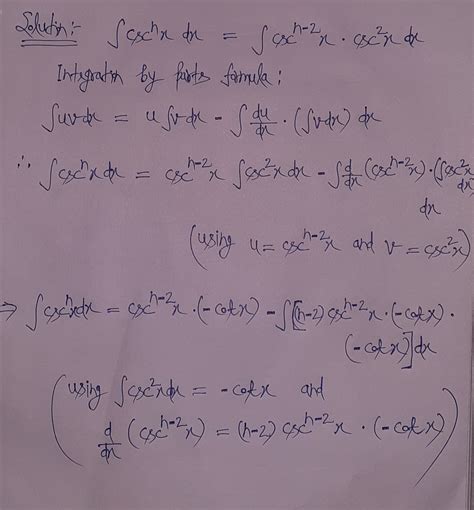 Solution:- ∫cscⁿx dx = ∫cscⁿ⁻²x · csc²x dx
Integration by parts formula:
∫uvdx = u∫vdx - ∫du/dx · (∫vdx) dx
∴ ∫cscⁿx dx = cscⁿ⁻²x ∫csc²x dx - ∫d/dx(cscⁿ⁻²x)·(∫csc²x dx) dx
(using u = cscⁿ⁻²x and v = csc²x)
⇒ ∫cscⁿxdx = cscⁿ⁻²x·(-cotx) - ∫[(n-2)cscⁿ⁻²x·(-cotx)·
(-cotx)]dx
(using ∫csc²xdx = -cotx and
d/dx (cscⁿ⁻²x) = (n-2)cscⁿ⁻²x·(-cotx))